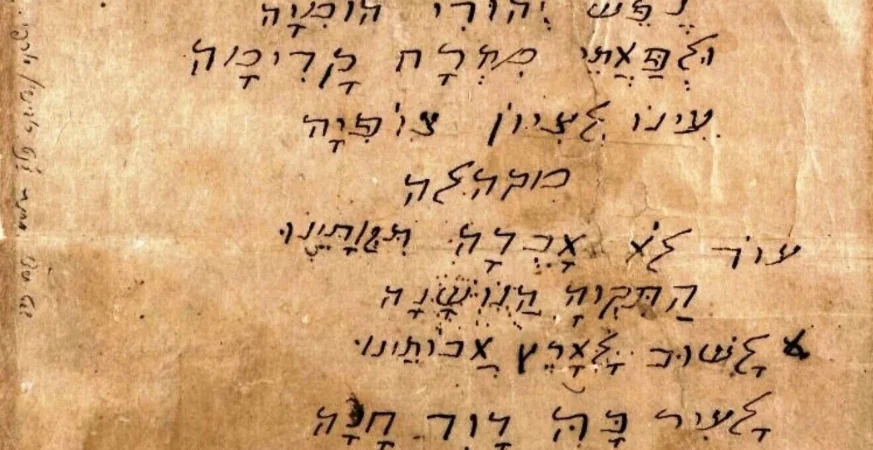 נֶפֶש יְהוּדִי הוֹמִיָה
וּלְפַאֲתֵי מִזְרָח קָדִימָה
עֵינוֹ לְצִיוֹן צוֹפִיָה
מקהלה
עוֹד לֹא אָבְדָה תִּקְוָתֵינוּ
הַתִּקְוָה הַנוֹשָׁנָה
לָשׁוּב לָאָרֶץ אֲבוֹתֵינוּ
לָעִיר בָּהּ דָוִד חָנָה